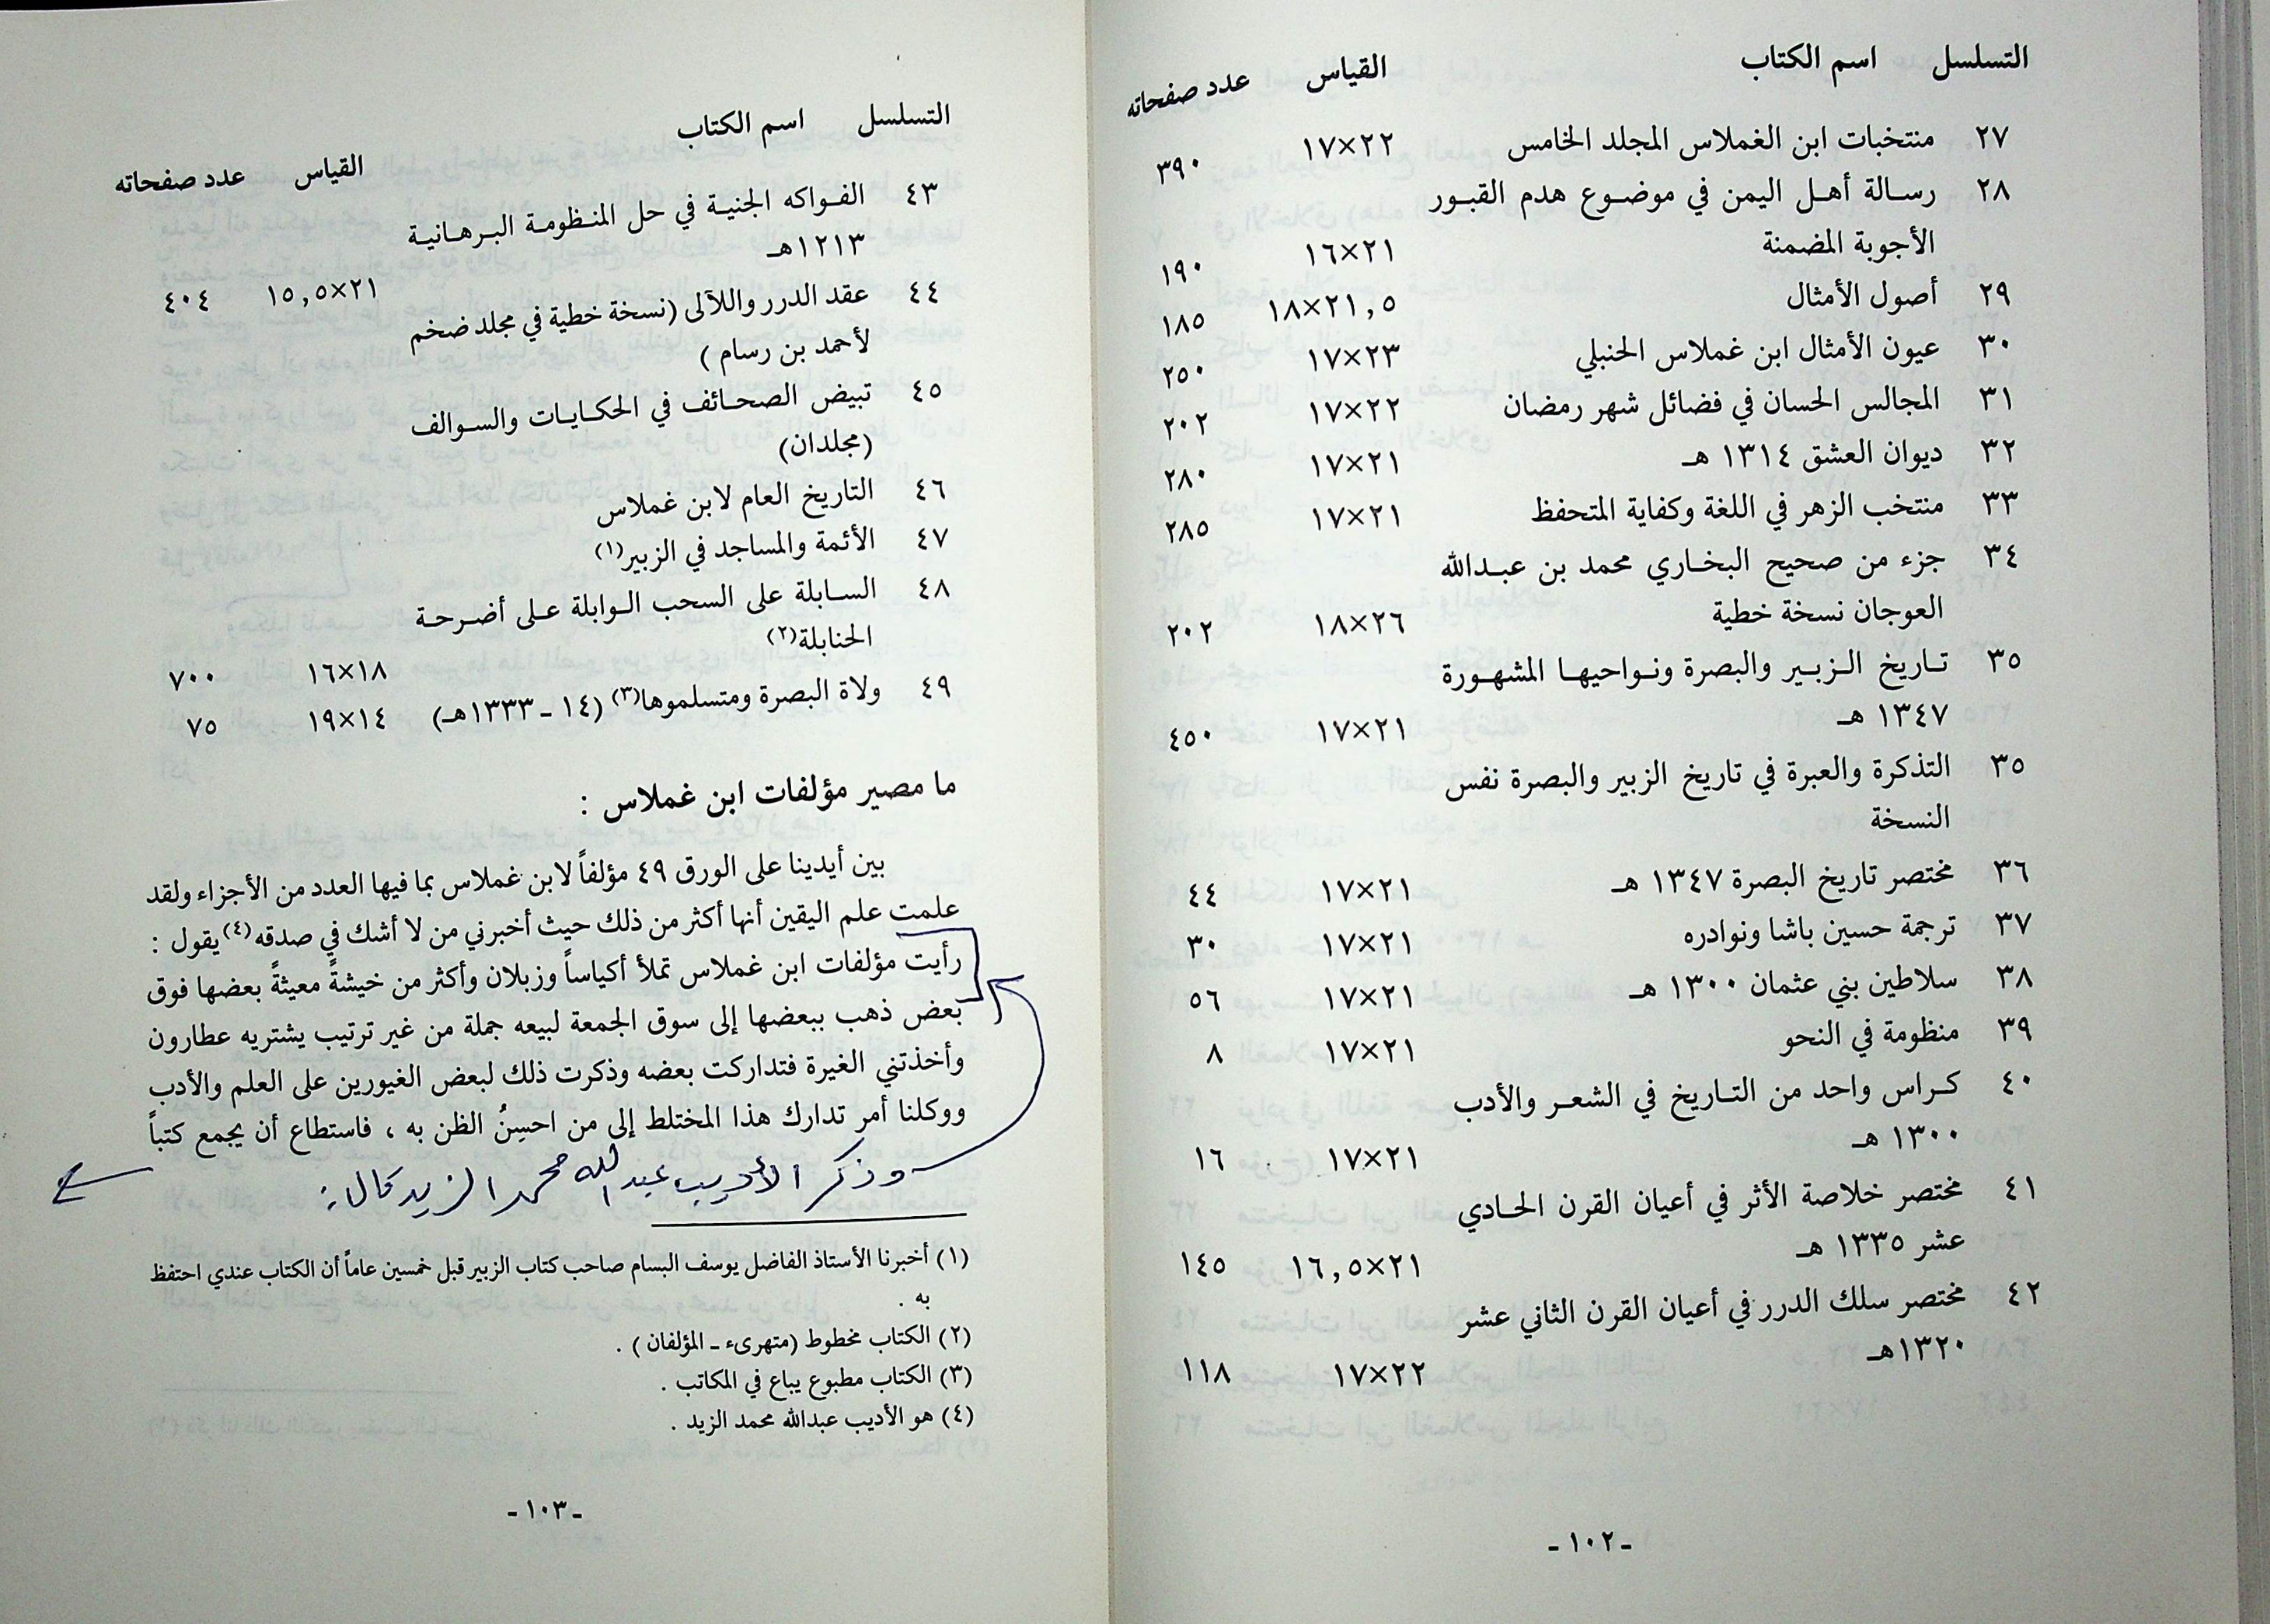 التسلسل اسم الكتاب القياس عدد صفحاته
٢٧ منتخبات ابن الغملاس المجلد الخامس ٢٢×١٧ ٣٩٠
٢٨ رسالة أهل اليمن في موضوع هدم القبور
الأجوبة المضمنة ٢١×١٦ ١٩٠
٢٩ أصول الأمثال ٢١,٥×١٨ ١٨٥
٣٠ عيون الأمثال ابن غملاس الحنبلي ٢٣×١٧ ٢٥٠
٣١ المجالس الحسان في فضائل شهر رمضان ٢٢×١٧ ٢٠٢
٣٢ ديوان العشق ١٣١٤ هـ ٢١×١٧ ٢٨٠
٣٣ منتخب الزهر في اللغة وكفاية المتحفظ ٢١×١٧ ٢٨٥
٣٤ جزء من صحيح البخاري محمد بن عبدالله
العوجان نسخة خطية ٢٦×١٨ ٢٠٢
٣٥ تاريخ الزبير والبصرة ونواحيها المشهورة
١٣٤٧ هـ ٢١×١٧ ٤٥٠
٣٥ التذكرة والعبرة في تاريخ الزبير والبصرة نفس
النسخة
٣٦ مختصر تاريخ البصرة ١٣٤٧ هـ ٢١×١٧ ٤٤
٣٧ ترجمة حسين باشا ونوادره ٢١×١٧ ٣٠
٣٨ سلاطين بني عثمان ١٣٠٠ هـ ٢١×١٧ ٥٦
٣٩ منظومة في النحو ٢١×١٧ ٨
٤٠ كراس واحد من التاريخ في الشعر والأدب
١٣٠٠ هـ ٢١×١٧ ١٦
٤١ مختصر خلاصة الأثر في أعيان القرن الحادي
عشر ١٣٣٥ هـ ٢١×١٦,٥ ١٤٥
٤٢ مختصر سلك الدرر في أعيان القرن الثاني عشر
١٣٢٠هـ ٢٢×١٧ ١١٨
- ١٠٢ -
التسلسل اسم الكتاب القياس عدد صفحاته
٤٣ الفواكه الجنية في حل المنظومة البرهانية
١٢١٣هـ ٢١×١٥,٥ ٤٠٤
٤٤ عقد الدرر واللآلى (نسخة خطية في مجلد ضخم
لأحمد بن رسام )
٤٥ تبيض الصحائف في الحكايات والسوالف
(مجلدان)
٤٦ التاريخ العام لابن غملاس
٤٧ الأئمة والمساجد في الزبير(١)
٤٨ السابلة على السحب الوابلة على أضرحة
الحنابلة(٢) ١٨×١٦ ٧٠٠
٤٩ ولاة البصرة ومتسلموها(٣) (١٤ - ١٣٣٣هـ) ١٤×١٩ ٧٥
ما مصير مؤلفات ابن غملاس :
بين أيدينا على الورق ٤٩ مؤلفاً لابن غملاس بما فيها العدد من الأجزاء ولقد
علمت علم اليقين أنها أكثر من ذلك حيث أخبرني من لا أشك في صدقه(٤) يقول :
رأيت مؤلفات ابن غملاس تملأ أكياساً وزبلان وأكثر من خيشةً معيثةً بعضها فوق
بعض ذهب ببعضها إلى سوق الجمعة لبيعه جملة من غير ترتيب يشتريه عطارون
وأخذتني الغيرة فتداركت بعضه وذكرت ذلك لبعض الغيورين على العلم والأدب
ووكلنا أمر تدارك هذا المختلط إلى من احسِنُ الظن به ، فاستطاع أن يجمع كتباً
وذكر الأديب عبدالله محمد الزيد قال :
(١) أخبرنا الأستاذ الفاضل يوسف البسام صاحب كتاب الزبير قبل خمسين عاماً أن الكتاب عندي احتفظ
به .
(٢) الكتاب مخطوط (متهرىء - المؤلفان ) .
(٣) الكتاب مطبوع يباع في المكاتب .
(٤) هو الأديب عبدالله محمد الزيد .
- ١٠٣ -